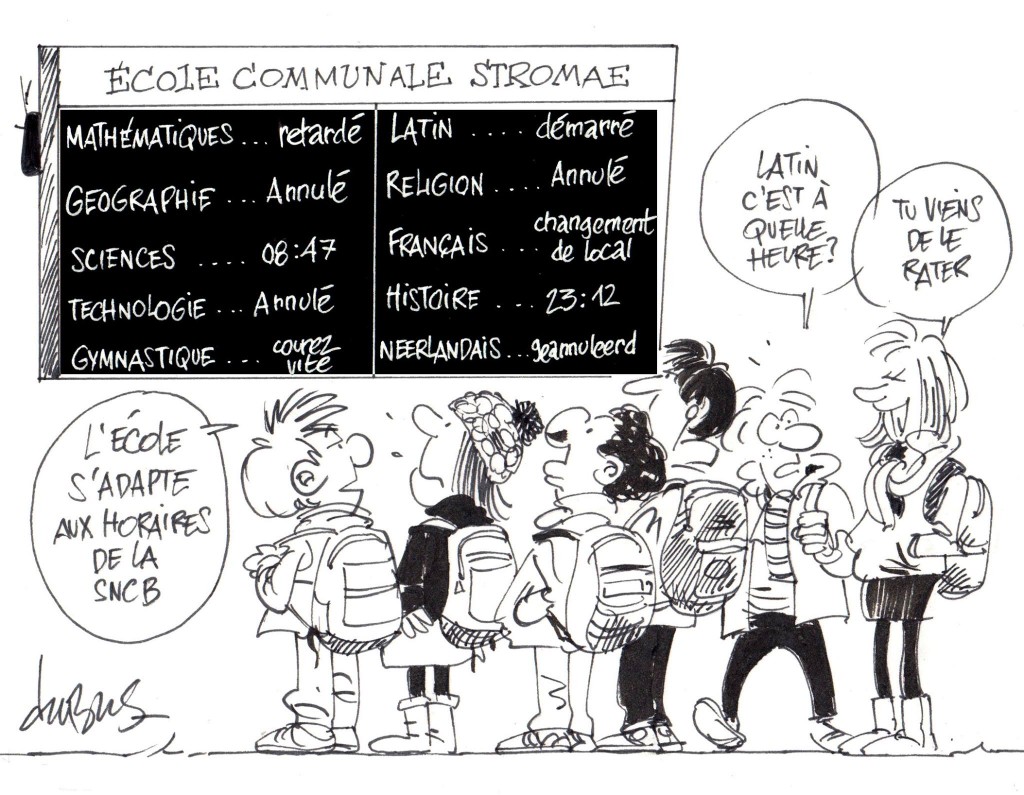 ÉCOLE COMMUNALE STROMAE
MATHÉMATIQUES ... retardé
GEOGRAPHIE ... Annulé
SCIENCES .... 08:47
TECHNOLOGIE ... Annulé
GYMNASTIQUE ... courez
vite
LATIN .... démarré
RELIGION .... Annulé
FRANÇAIS .... changement
de local
HISTOIRE ... 23:12
NEERLANDAIS ... geannuleerd
LATIN
C'EST À
QUELLE
HEURE?
TU VIENS
DE LE
RATER
L'ÉCOLE
S'ADAPTE
AUX HORAIRES
DE LA
SNCB
duBus